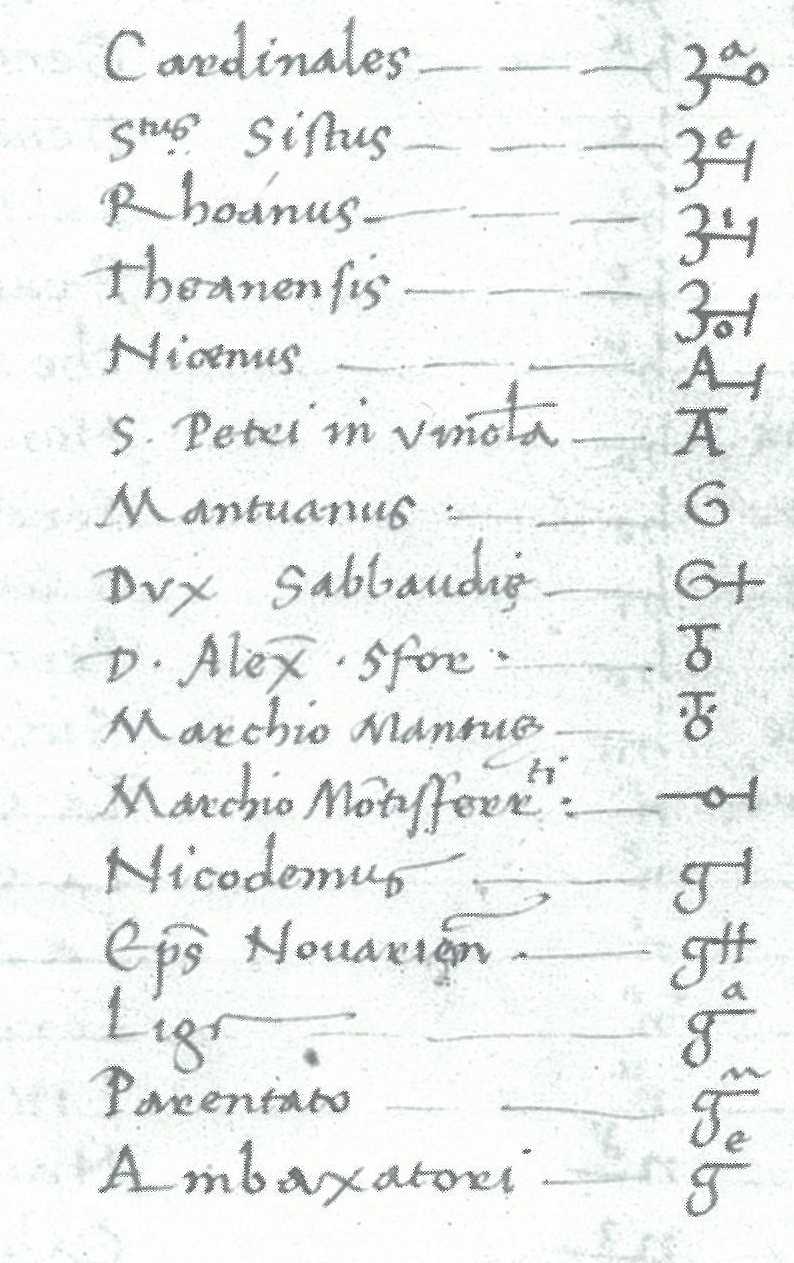 Cardinales
Stus Sistus
Rhoanus
Theanensis
Nicenus
S. Petri in vincla
Mantuanus
Dux Sabbaudię
D. Alex. Sfor
Marchio Mantuę
Marchio Mōtisferrti
Nicodemus
Eps Nouarien
Ligr
Parentato
Ambaxatori